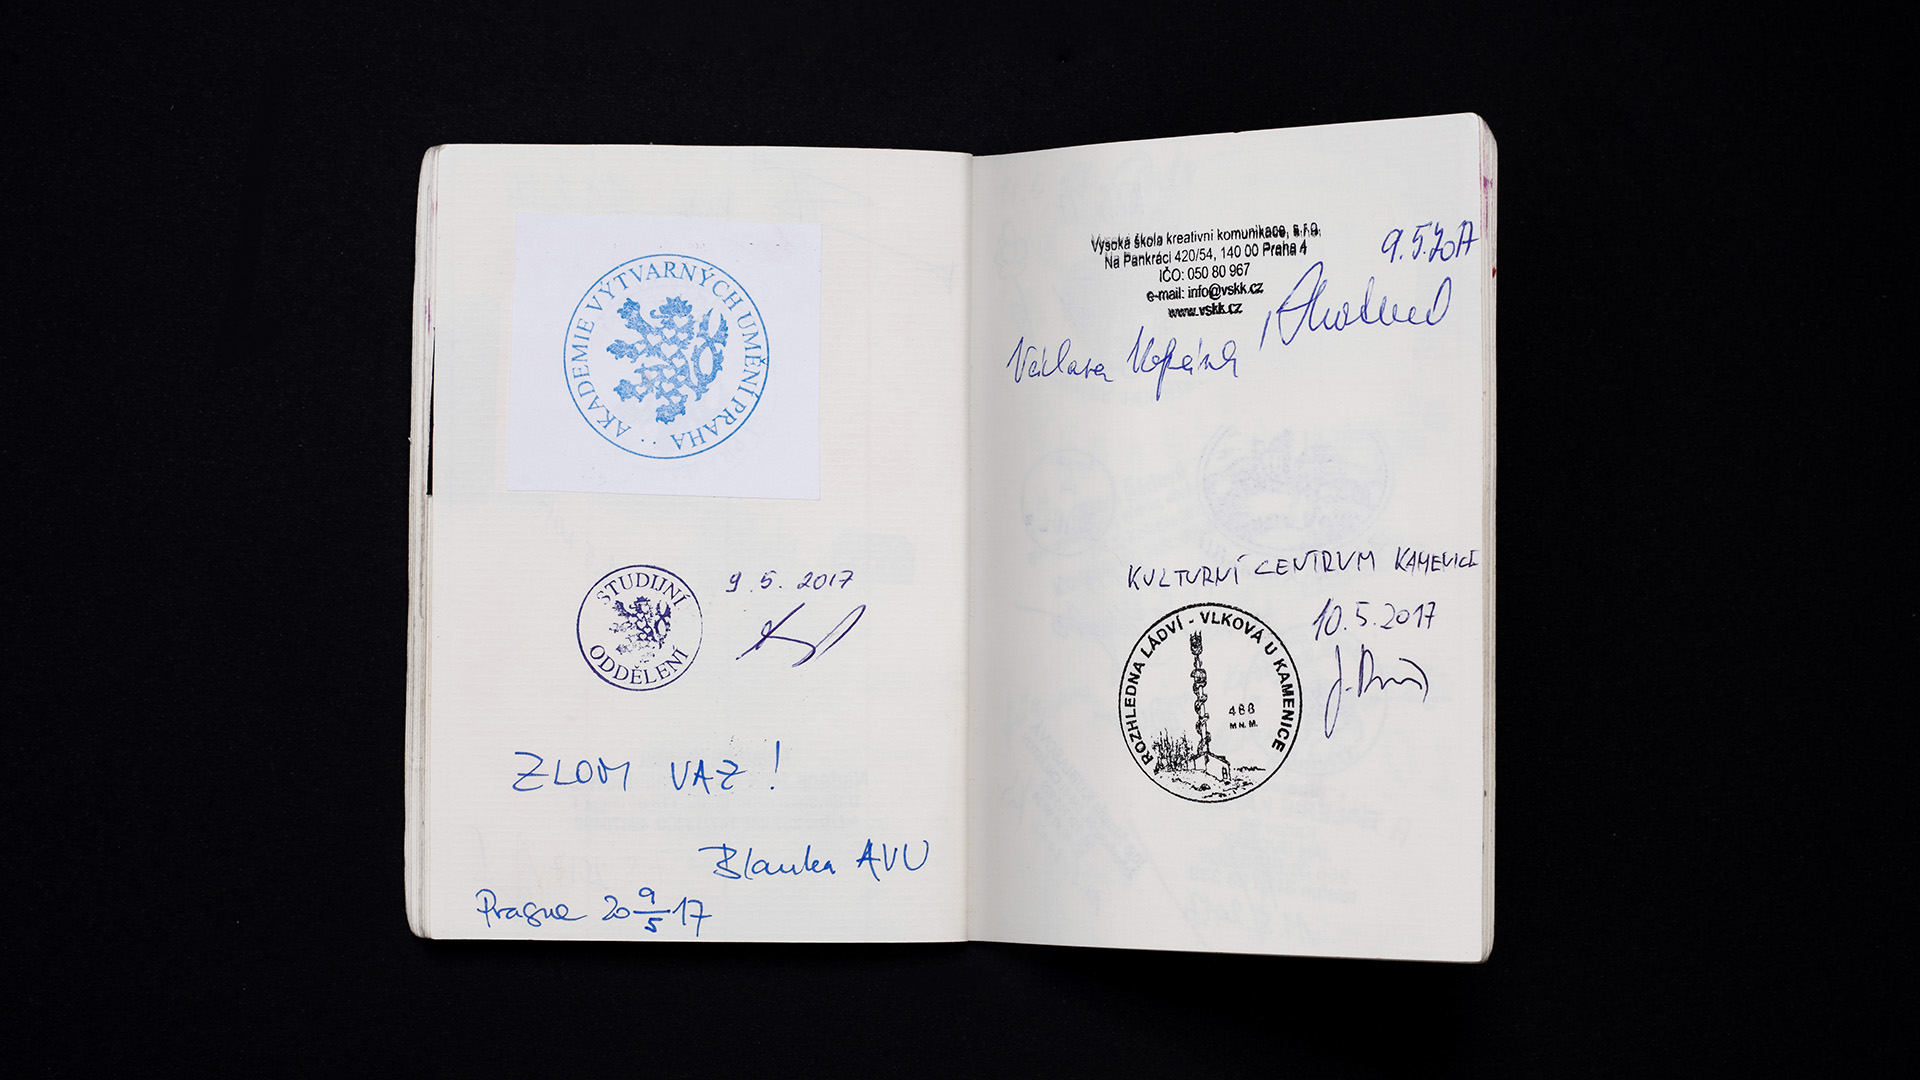 AKADEMIE VÝTVARNÝCH UMĚNÍ PRAHA
STUDIJNÍ ODDĚLENÍ
9.5.2017
ZLOM VAZ!
Blanka AVU
Prague 20 9/5 17
Vysoká škola kreativní komunikace, s.r.o.
Na Pankráci 420/54, 140 00 Praha 4
IČO: 050 80 967
e-mail: info@vskk.cz
www.vskk.cz
9.5.2017
Václava
KULTURNÍ CENTRUM KAMENICE
10.5.2017
ROZHLEDNA LÁDVÍ - VLKOVÁ U KAMENICE
488
M N. M.